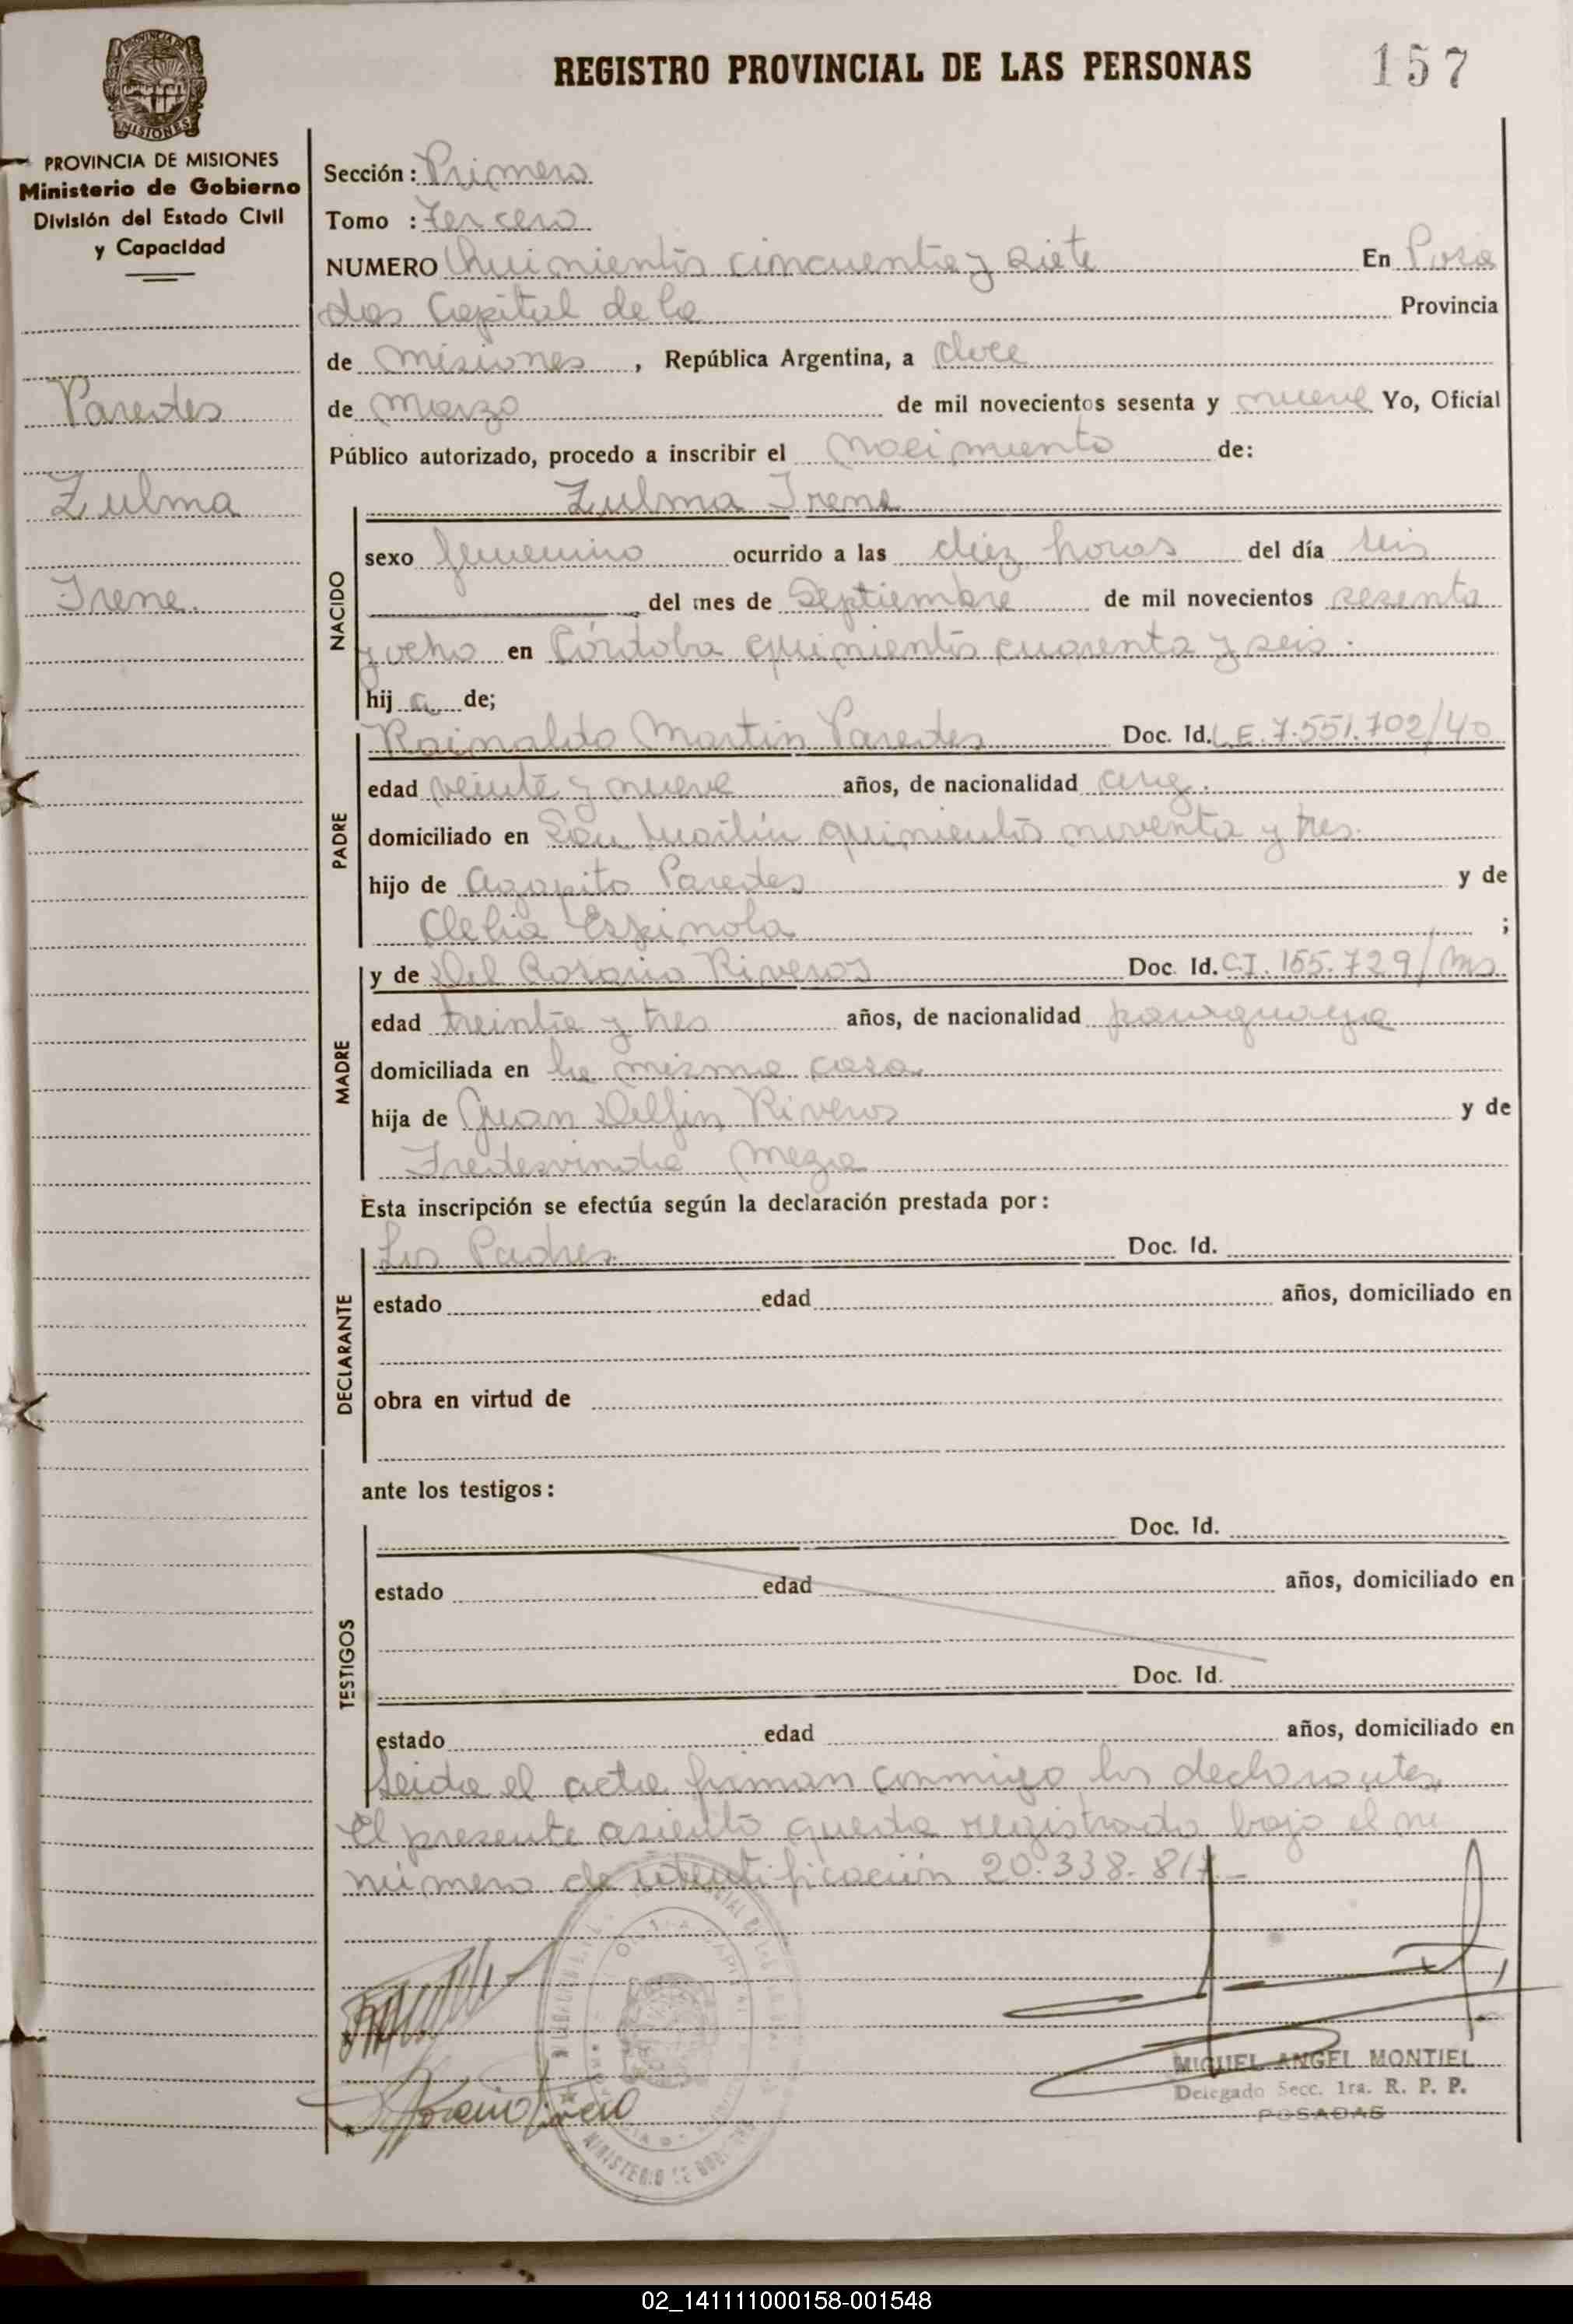 REGISTRO PROVINCIAL DE LAS PERSONAS
157
PROVINCIA DE MISIONES
Ministerio de Gobierno
División del Estado Civil
y Capacidad
Paredes
Zulma
Irene.
Sección: Primera
Tomo : Tercero
NUMERO Quinientos cincuenta y siete En Posa
das Capital de la Provincia
de Misiones, República Argentina, a doce
de Marzo de mil novecientos sesenta y nueve Yo, Oficial
Público autorizado, procedo a inscribir el nacimiento de:
Zulma Irene
NACIDO
sexo femenino ocurrido a las diez horas del día seis
del mes de Septiembre de mil novecientos sesenta
y ocho en Córdoba quinientos cuarenta y seis.
hij a de;
PADRE
Rainaldo Martin Paredes Doc. Id. L.E. 7.551.702/40
edad veinte y nueve años, de nacionalidad arg.
domiciliado en San Martín quinientos noventa y tres.
hijo de Agapito Paredes y de
Clelia Espinola ;
MADRE
y de Del Rosario Riveros Doc. Id. C.I. 155.729/Ms
edad treinta y tres años, de nacionalidad paraguaya
domiciliada en la misma casa
hija de Juan Delfin Riveros y de
Fredesvinda Meza
Esta inscripción se efectúa según la declaración prestada por:
DECLARANTE
Los Padres. Doc. Id.
estado edad años, domiciliado en
obra en virtud de
ante los testigos:
TESTIGOS
Doc. Id.
estado edad años, domiciliado en
Doc. Id.
estado edad años, domiciliado en
Leida el acta firman conmigo los declarantes.
El presente asiento queda registrado bajo el nu
número de identificación 20.338.817.-
MIGUEL ANGEL MONTIEL
Delegado Secc. 1ra. R. P. P.
POSADAS
MINISTERIO DE GOB
02_141111000158-001548